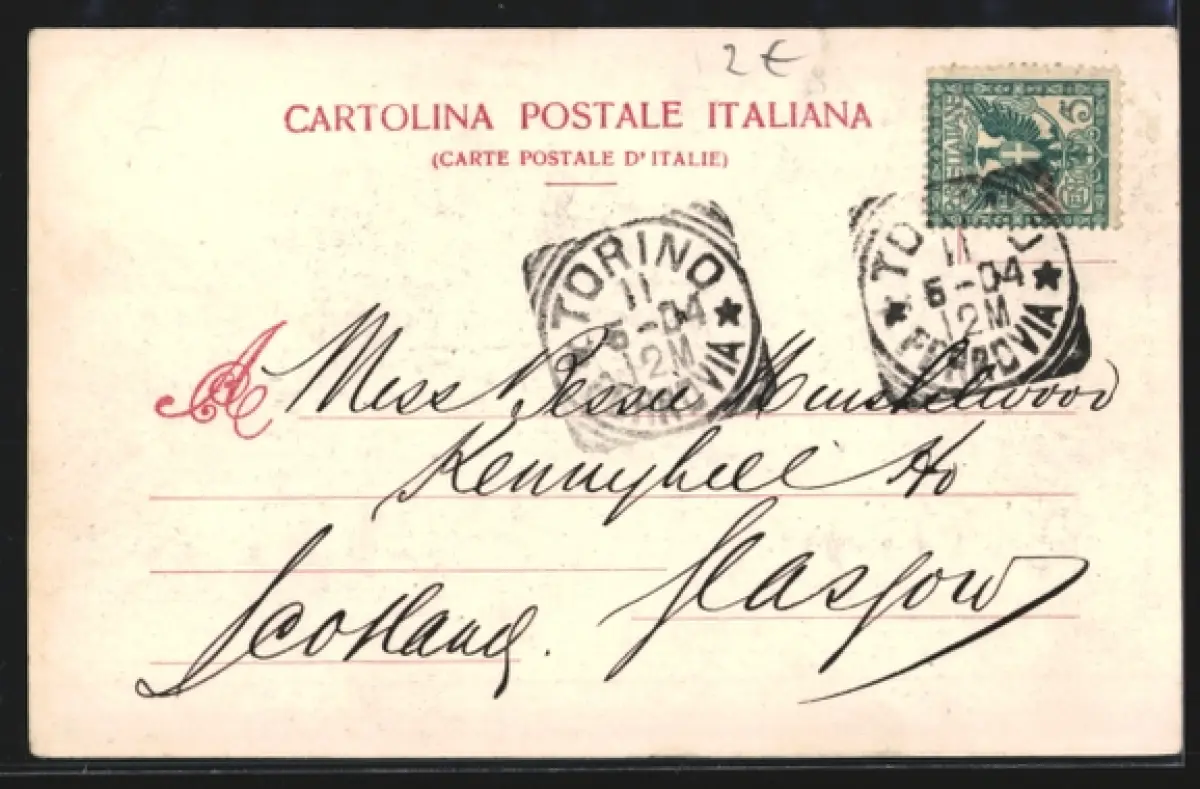 2€
CARTOLINA POSTALE ITALIANA
(CARTE POSTALE D'ITALIE)
POSTE ITALIANE
5
TORINO
11
5-04
12M
FERROVIA
TORINO
11
5-04
12M
FERROVIA
A Miss Bessie Hinshelwood
Kennyhill Ho
Glasgow
Scotland.